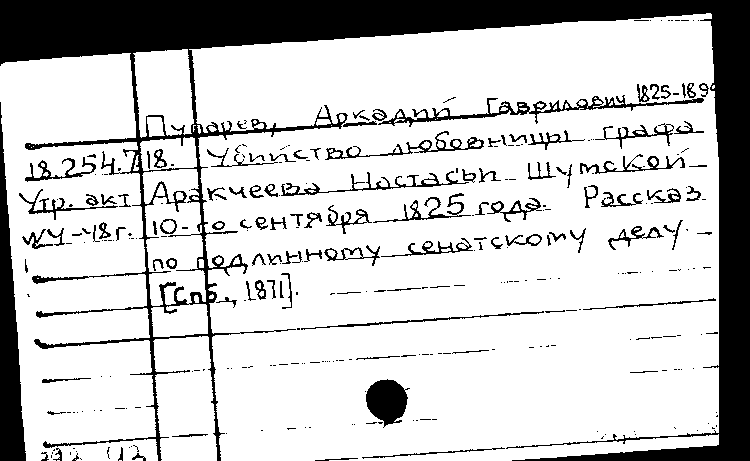 Пупарев, Аркадий Гаврилович, 1825-189
18.254.7.18. Убийство любовницы графа
Утр. акт Аракчеева Настасьи Шумской
10-го сентября 1825 года. Рассказ
по подлинному сенатскому делу.
[Спб., 1871].